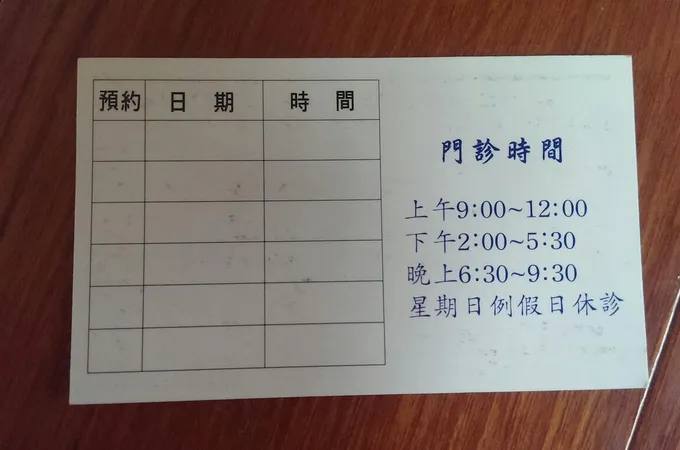 預約 日期 時間
門診時間
上午9:00~12:00
下午2:00~5:30
晚上6:30~9:30
星期日例假日休診